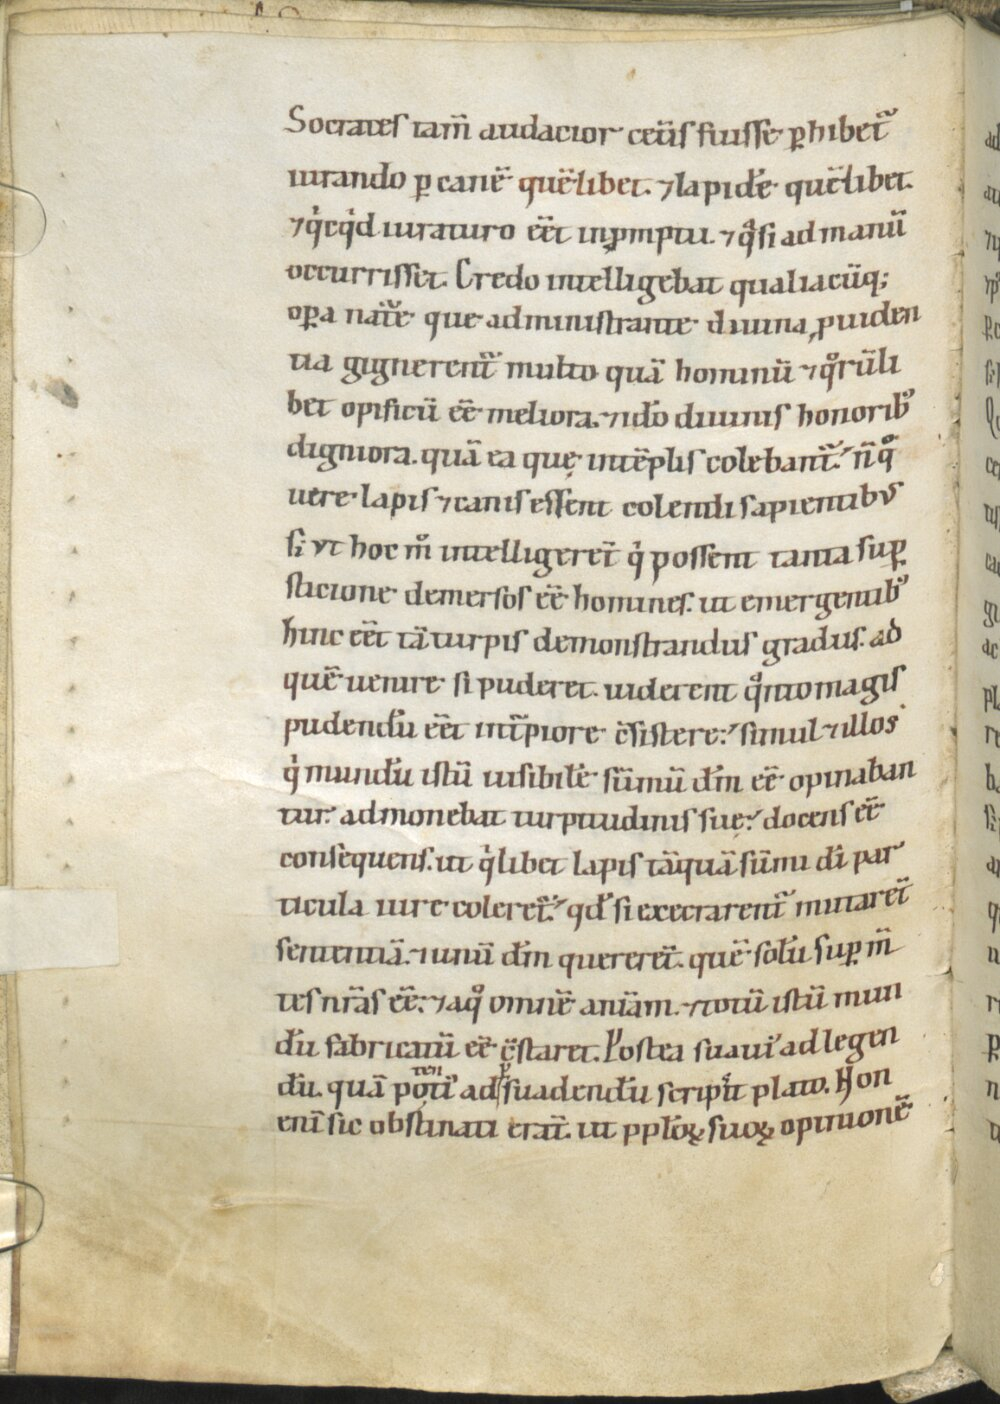 Socrates tam̄ audacior cet̄is fuisse ꝑhibet᷑
iurando ꝑ canē quēlibet. ⁊ lapidē quēlibet.
⁊ qͥcqͥd iuraturo eēt inꝓmptu. ⁊ qͣsi ad manū
occurrisset. Credo intelligebat qualiacūq;
oꝑa natᷓe que administrante diuina ꝓuiden
tia gignerent᷑ multo quā hominū ⁊ qͦrūli
bet opificū eē meliora. ⁊ ido diuinis honoribꝰ
digniora. quā ea quę in tēplis colebant᷑. n̄ qͦ
uere lapis ⁊ canis essent colendi sapientibus
s; ut hoc mͦ intelligeret᷑ qͥ possent tanta suꝑ
sticione demersos eē homines. ut emergentibꝰ
hinc eēt tā turpis demonstrandus gradus. ad
quē uenire si puderet. uiderent qͣnto magis
pudendū eēt in t᷑piore cōsistere. simul ⁊ illos
qͥ mundū istū uisibilē sūmū dm̄ eē opinaban
tur. admonebat turpitudinis suę. docens eē
consequens. ut qͥlibet lapis tāquā sūmi di par
ticula iure coleret᷑. qd̄ si execrarent᷑ mutaret᷑
sententiā. ⁊ unū dm̄ quereret᷑. quē solū suꝑ m̄
tes nr̄as eē. ⁊ a qͦ omnē animam. ⁊ totū istū mun
dū fabricatū eē cōstaret. Postea suauiꝰ ad legen
dū. quā potentiꝰ ad ꝑsuadendū scripsit plato. Non
enī sic obstinati erant. ut ppl̄oꝝ suoꝝ opinionē